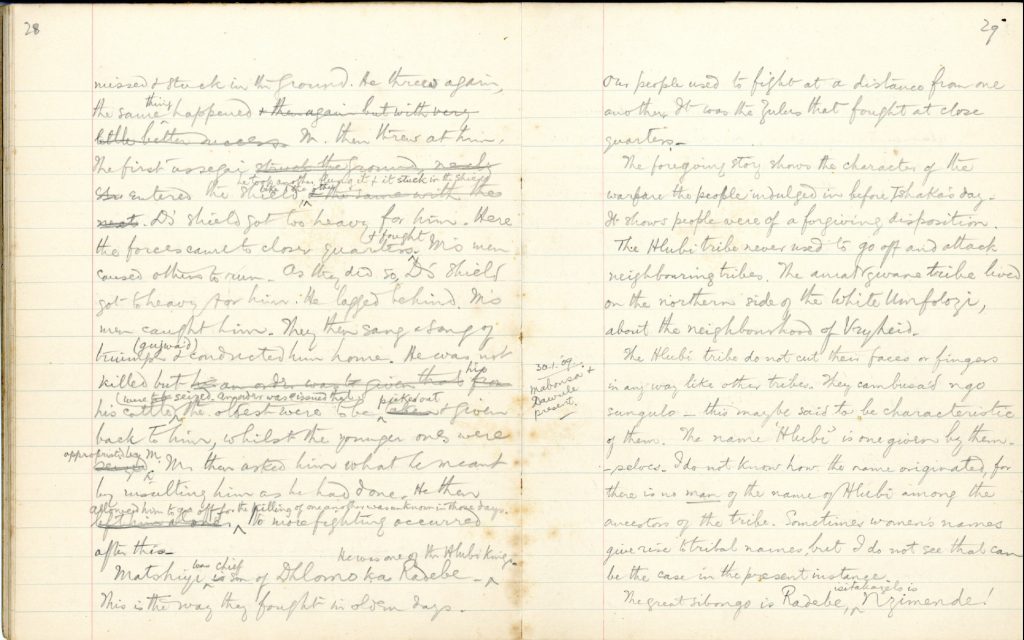 28
missed & stuck in the ground. He threw again,
the same thing happened & then again but with very
little better success. M. then threw at him.
The first assegai struck the ground
entered the shield & the same with the
next. D's shield got too heavy for him. Here
the forces came to closer quarters & fought. M's men
caused others to run. As they did so, D's shield
got to heavy for him. He lagged behind. M's
men caught him. They then sang a song of
triumph (gujwa'd) & conducted him home. He was not
killed but an order was given that his from
his cattle (were to be seized. An order was issued that) the oldest were to be picked out & given
back to him, whilst the younger ones were
appropriated by M. M. then asked him what he meant
by insulting him as he had done. He then
allowed him to go off for the killing of one another was unknown in those days.
left him alone. No more fighting occurred
after this.
Matshiyi was chief is son of Dhlomo ka Radebe. He was one of the Hlubi kings.
This is the way they fought in olden days.
29
Our people used to fight at a distance from one
another. It was the Zulus that fought at close
quarters.
The foregoing story shows the character of the
warfare the people indulged in before Tshaka's day.
It shows people were of a forgiving disposition.
The Hlubi tribe never used to go off and attack
neighbouring tribes. The amaNgwane tribe lived
on the northern side of the White Umfolozi,
about the neighbourhood of Vryheid.
30.1.'09.
Mabonsa +
Dawule
present.
The Hlubi tribe do not cut their faces or fingers
in any way like other tribes. They cambusa'd ngo
sungulo - this may be said to be characteristic
of them. The name 'Hlubi' is one given by them-
-selves. I do not know how the name originated, for
there is no man of the name of Hlubi among the
ancestors of the tribe. Sometimes women's names
give rise to tribal names, but I do not see that can
be the case in the present instance.
The great sibongo is Radebe, isitakazelo is Nzimende!